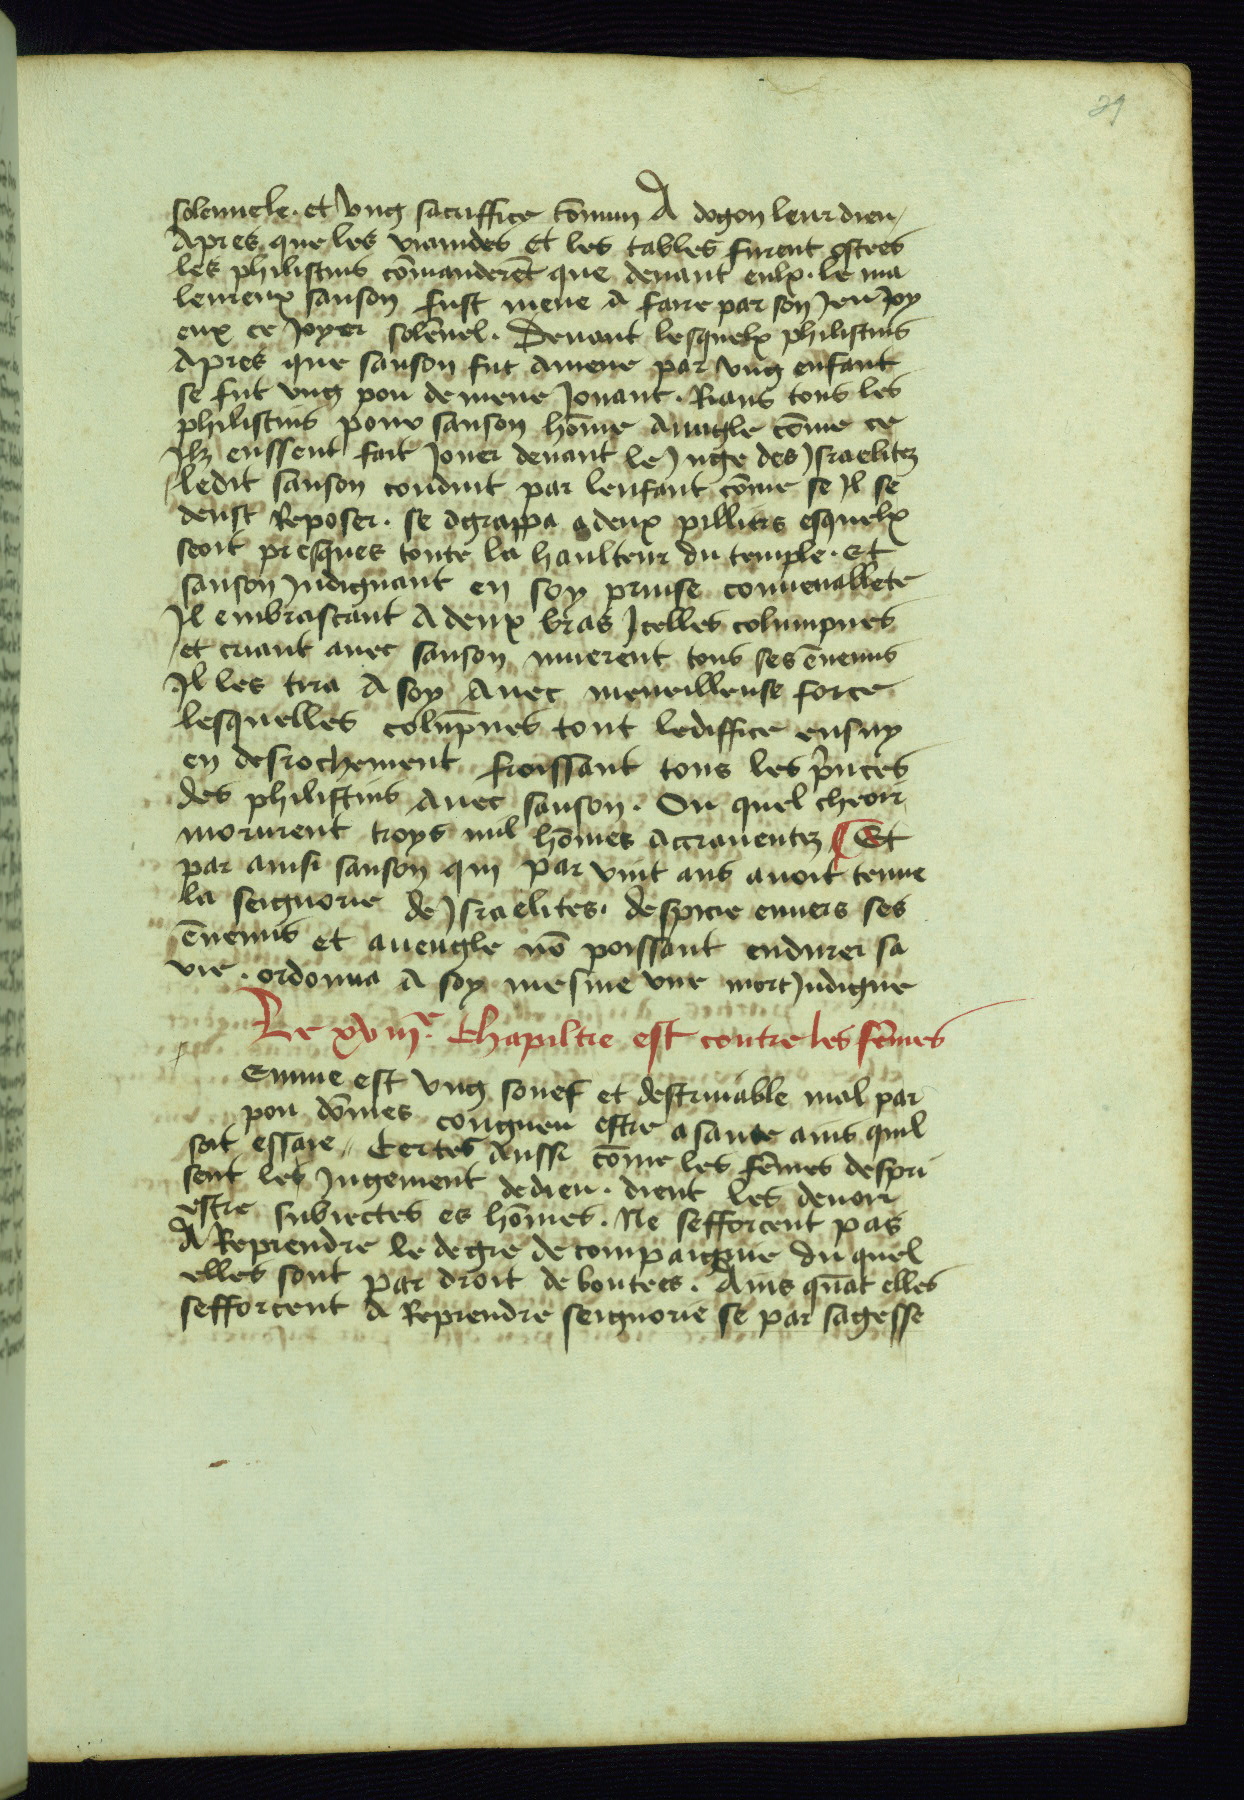 29
solennele. et vng sacriffice cōmun A dogon leur dieu
Apres que les viandes Et les tables furent ostees
les philistins cōmanderēt que deuant eulx. le ma
leureux sanson fust mene a faire par son Jeu Joy
eux ce Joyer solēnel. Deuant lesquelx philistins
Apres que sanson fut amene par vng enfant
se fut vng pou demene Jouant. Rians tous les
philistins pour sanson hōme Auugle cōme ce
Ilz eussent fait Jouer deuant le Juge des Israelitez
ledit sanson conduit par lenfant cōme se Il se
deust Reposer. se agrappa a deux pilliers esquelx
seoit presques toute la haulteur du temple. Et
sanson Indignant en soy prinse conuenablete
Il embrascant A deux bras Icelles columpnes
et criant auec sanson muerent tous ses ēnemis
Il les tira A soy Auec merueilleuse force
lesquelles colūpnes tout lediffice ensuy
en desrochement froissant tous les p̄nces
des philistins Auec sanson. Ou quel cheoir
morurent troys mil hōmes accrauentez Et
par ainsi sanson qui par vint ans auoit tenue
la seignorie de Israelites. despicie enuers ses
ēnemis et aueugle nō poissant endurer sa
vie. ordonna A soy mesme vne mort Indigne
Le xviiie. Chapiltre est contre les fēmes
Emme est vng souef et destruiable mal par
pou dōmes congneu estre a sante ains quil
soit essaie. Certes Aussi cōme les fēmes despri
sent les Jugement de dieu. dient les deuoir
estre subiectes es hōmes. Ne sefforcent pas
A Reprendre le degre de compaignie du quel
elles sont par droit deboutees. Ains quāt elles
sefforcent A Reprendre seignorie se par sagesse